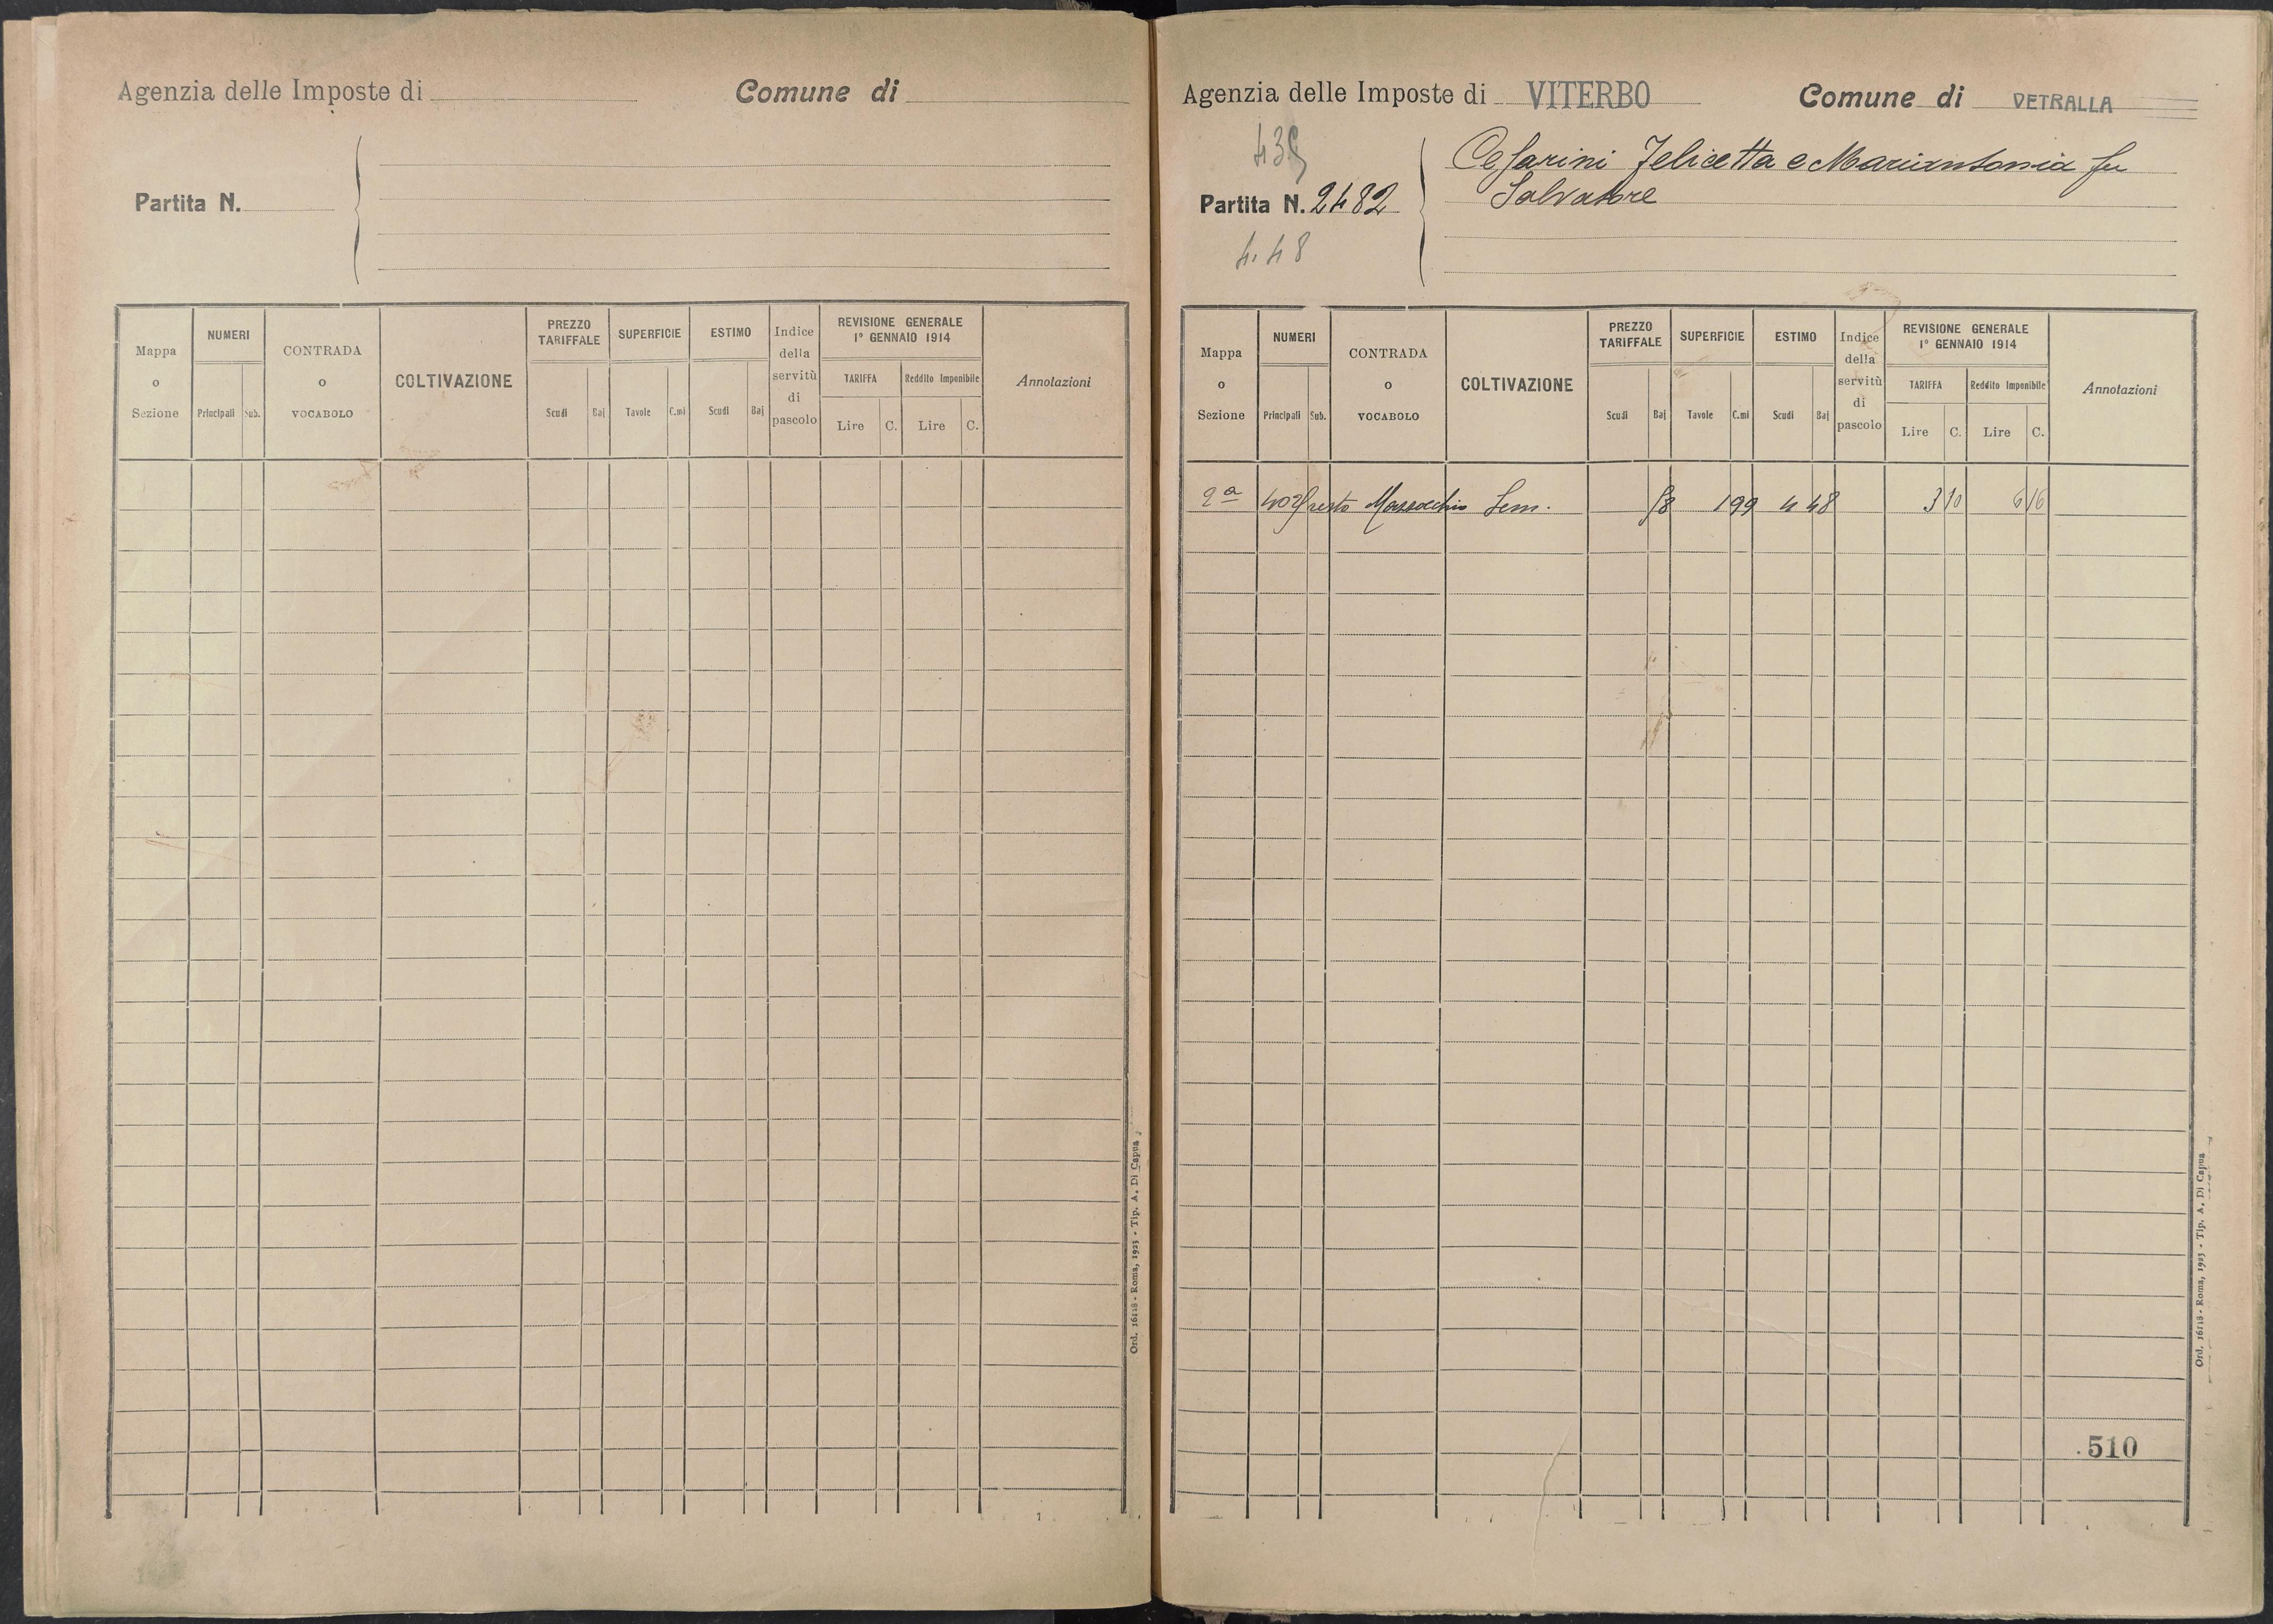 Agenzia delle Imposte di
Comune di
Partita N.
Mappa o Sezione
NUMERI
Principali Sub.
CONTRADA o VOCABOLO
COLTIVAZIONE
PREZZO TARIFFALE
Scudi Baj
SUPERFICIE
Tavole C.mi
ESTIMO
Scudi Baj
Indice della servitù di pascolo
REVISIONE GENERALE
1° GENNAIO 1914
TARIFFA Reddito Imponibile
Lire C. Lire C.
Annotazioni
Ord. 16118 - Roma, 1923 - Tip. A. Di Capua
Agenzia delle Imposte di VITERBO
Comune di VETRALLA
Partita N. 2482
4.48
Cesarini Felicetta e Mariantonia fu
Salvatore
Mappa o Sezione
NUMERI
Principali Sub.
CONTRADA o VOCABOLO
COLTIVAZIONE
PREZZO TARIFFALE
Scudi Baj
SUPERFICIE
Tavole C.mi
ESTIMO
Scudi Baj
Indice della servitù di pascolo
REVISIONE GENERALE
1° GENNAIO 1914
TARIFFA Reddito Imponibile
Lire C. Lire C.
Annotazioni
2ª resto Sem. 1 99 4 48 3 10 6 16
510
Ord. 16118 - Roma, 1923 - Tip. A. Di Capua